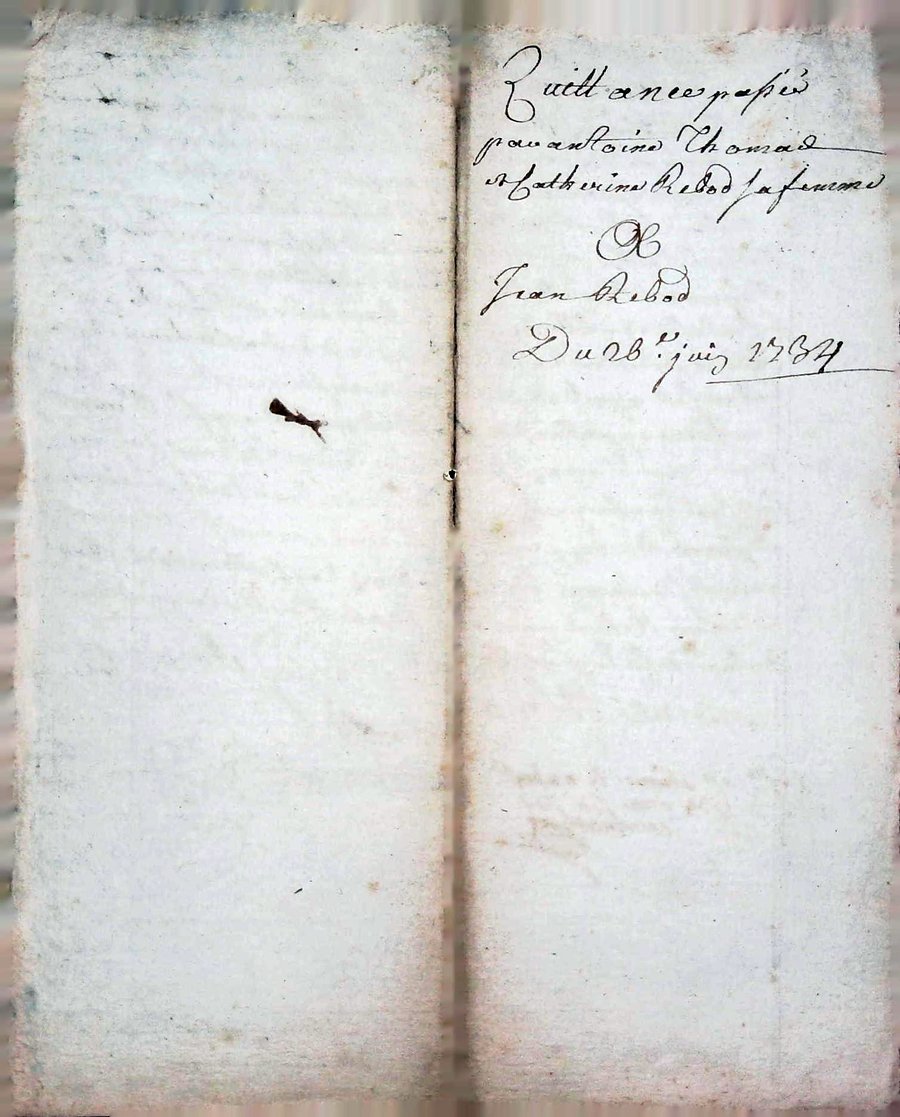 Quittance passée
par antoine Thomas
et Catherine Rebod sa femme
A
Jean Rebod
Du 26.e juin 1734